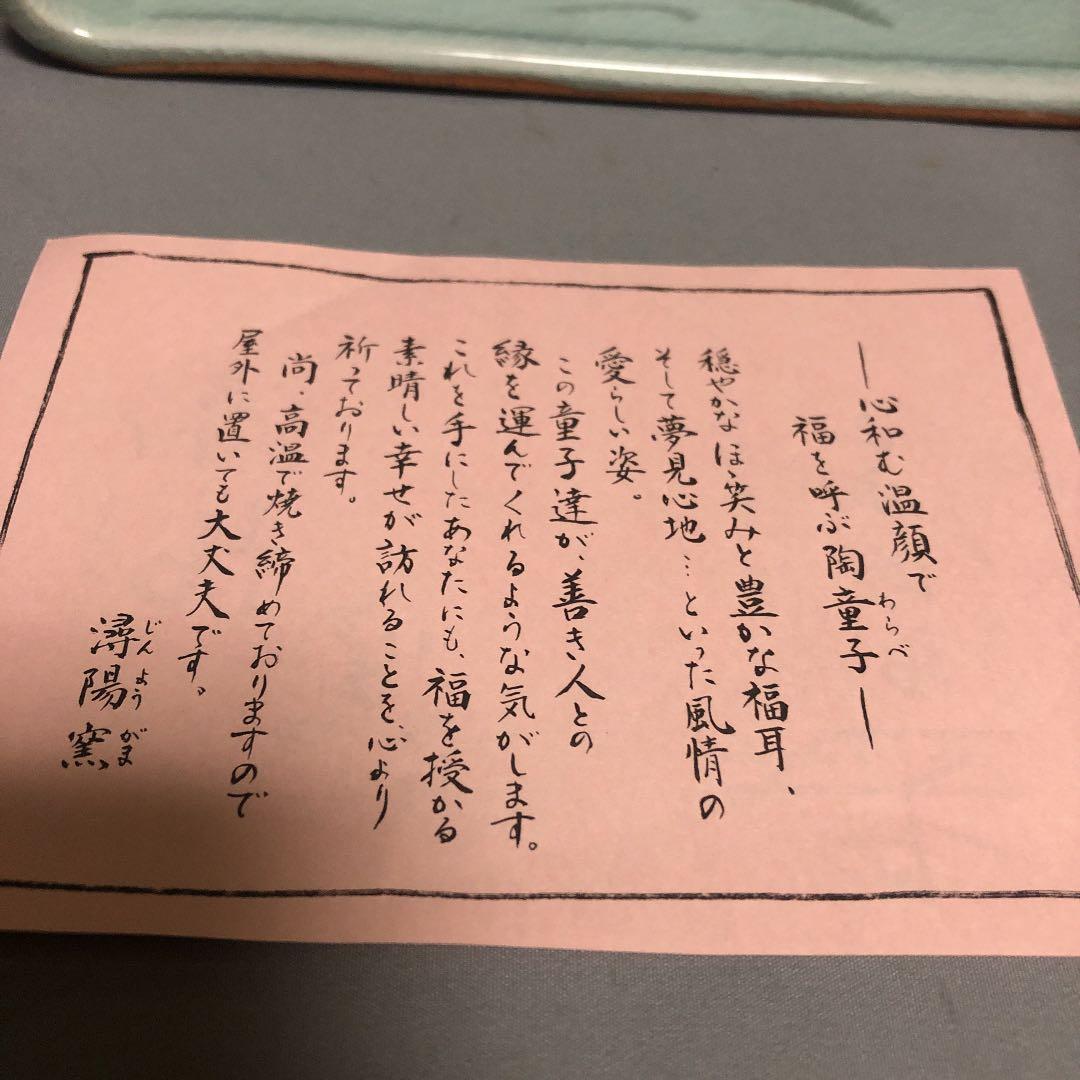 ―心和む温顔で
福を呼ぶ陶童子―
わらべ
穏やかなほゝ笑みと豊かな福耳、
そして夢見心地…といった風情の
愛らしい姿。
この童子達が、善き人との
縁を運んでくれるような気がします。
これを手にしたあなたにも、福を授かる
素晴しい幸せが訪れることを、心より
祈っております。
尚、高温で焼き締めておりますので
屋外に置いても大丈夫です。
潯陽窯
じんようがま